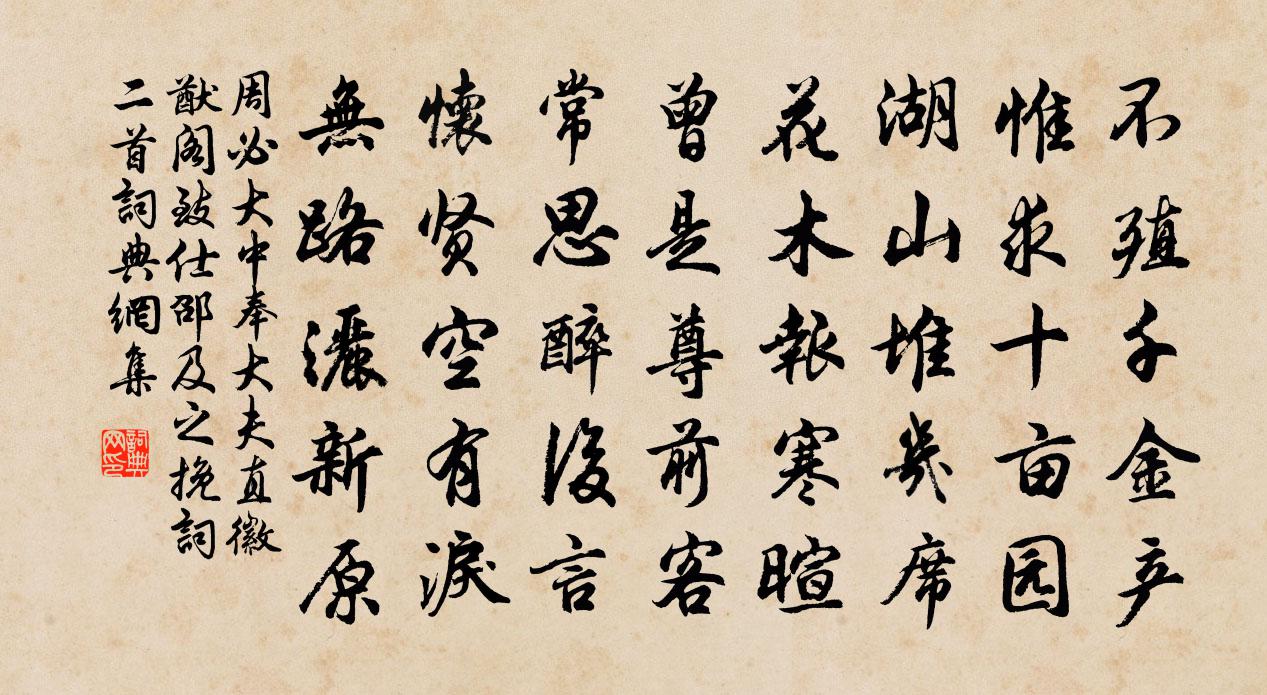 不殖千金产
惟求十亩园
湖山堆几席
花木報寒暄
曾是尊前客
常思醉後言
懷贤空有淚
無路灑新原
周必大中奉大夫直徽
猷阁致仕邵及之挽詞
二首詞典網集
詞典网印